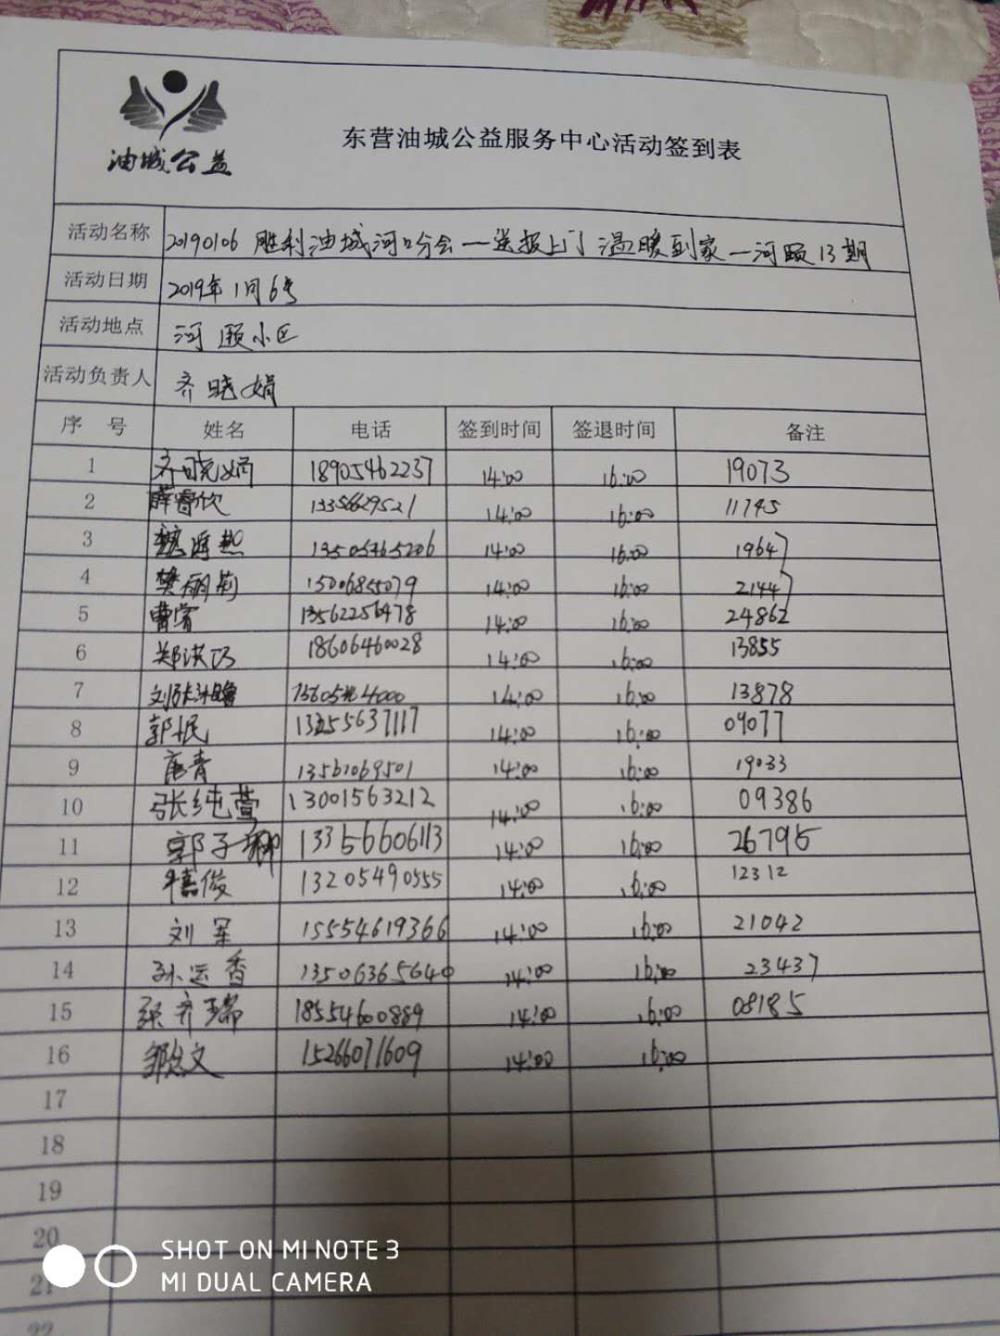 油城公益
东营油城公益服务中心活动签到表
活动名称 20190106 胜利油城河口分会—送报上门 温暖到家—河颐13期
活动日期 2019年1月6号
活动地点 河颐小区
活动负责人 齐晓娟
序 号 姓名 电话 签到时间 签退时间 备注
1 齐晓娟 18905462237 14:00 16:00 19073
2 薛睿欣 13356629521 14:00 16:00 11745
3 14:00 16:00 19647
4 樊丽莉 15006855079 14:00 16:00 21447
5 曹霄 13562256478 14:00 16:00 24862
6 郑洪巧 18606460028 14:00 16:00 13855
7 14:00 16:00 13878
8 郭民 14:00 16:00 09077
9 唐青 13561069501 14:00 16:00 19033
10 张纯萱 13001563212 14:00 16:00 09386
11 郭子 13356606113 14:00 16:00 26795
12 俊 13205490555 14:00 16:00 12312
13 刘军 15554619366 14:00 16:00 21042
14 孙运香 13506365640 14:00 16:00 23437
15 齐瑞 18554600889 14:00 16:00 08185
16 文 15266071609 14:00 16:00
17
18
19
20
21
22
SHOT ON MI NOTE 3
MI DUAL CAMERA